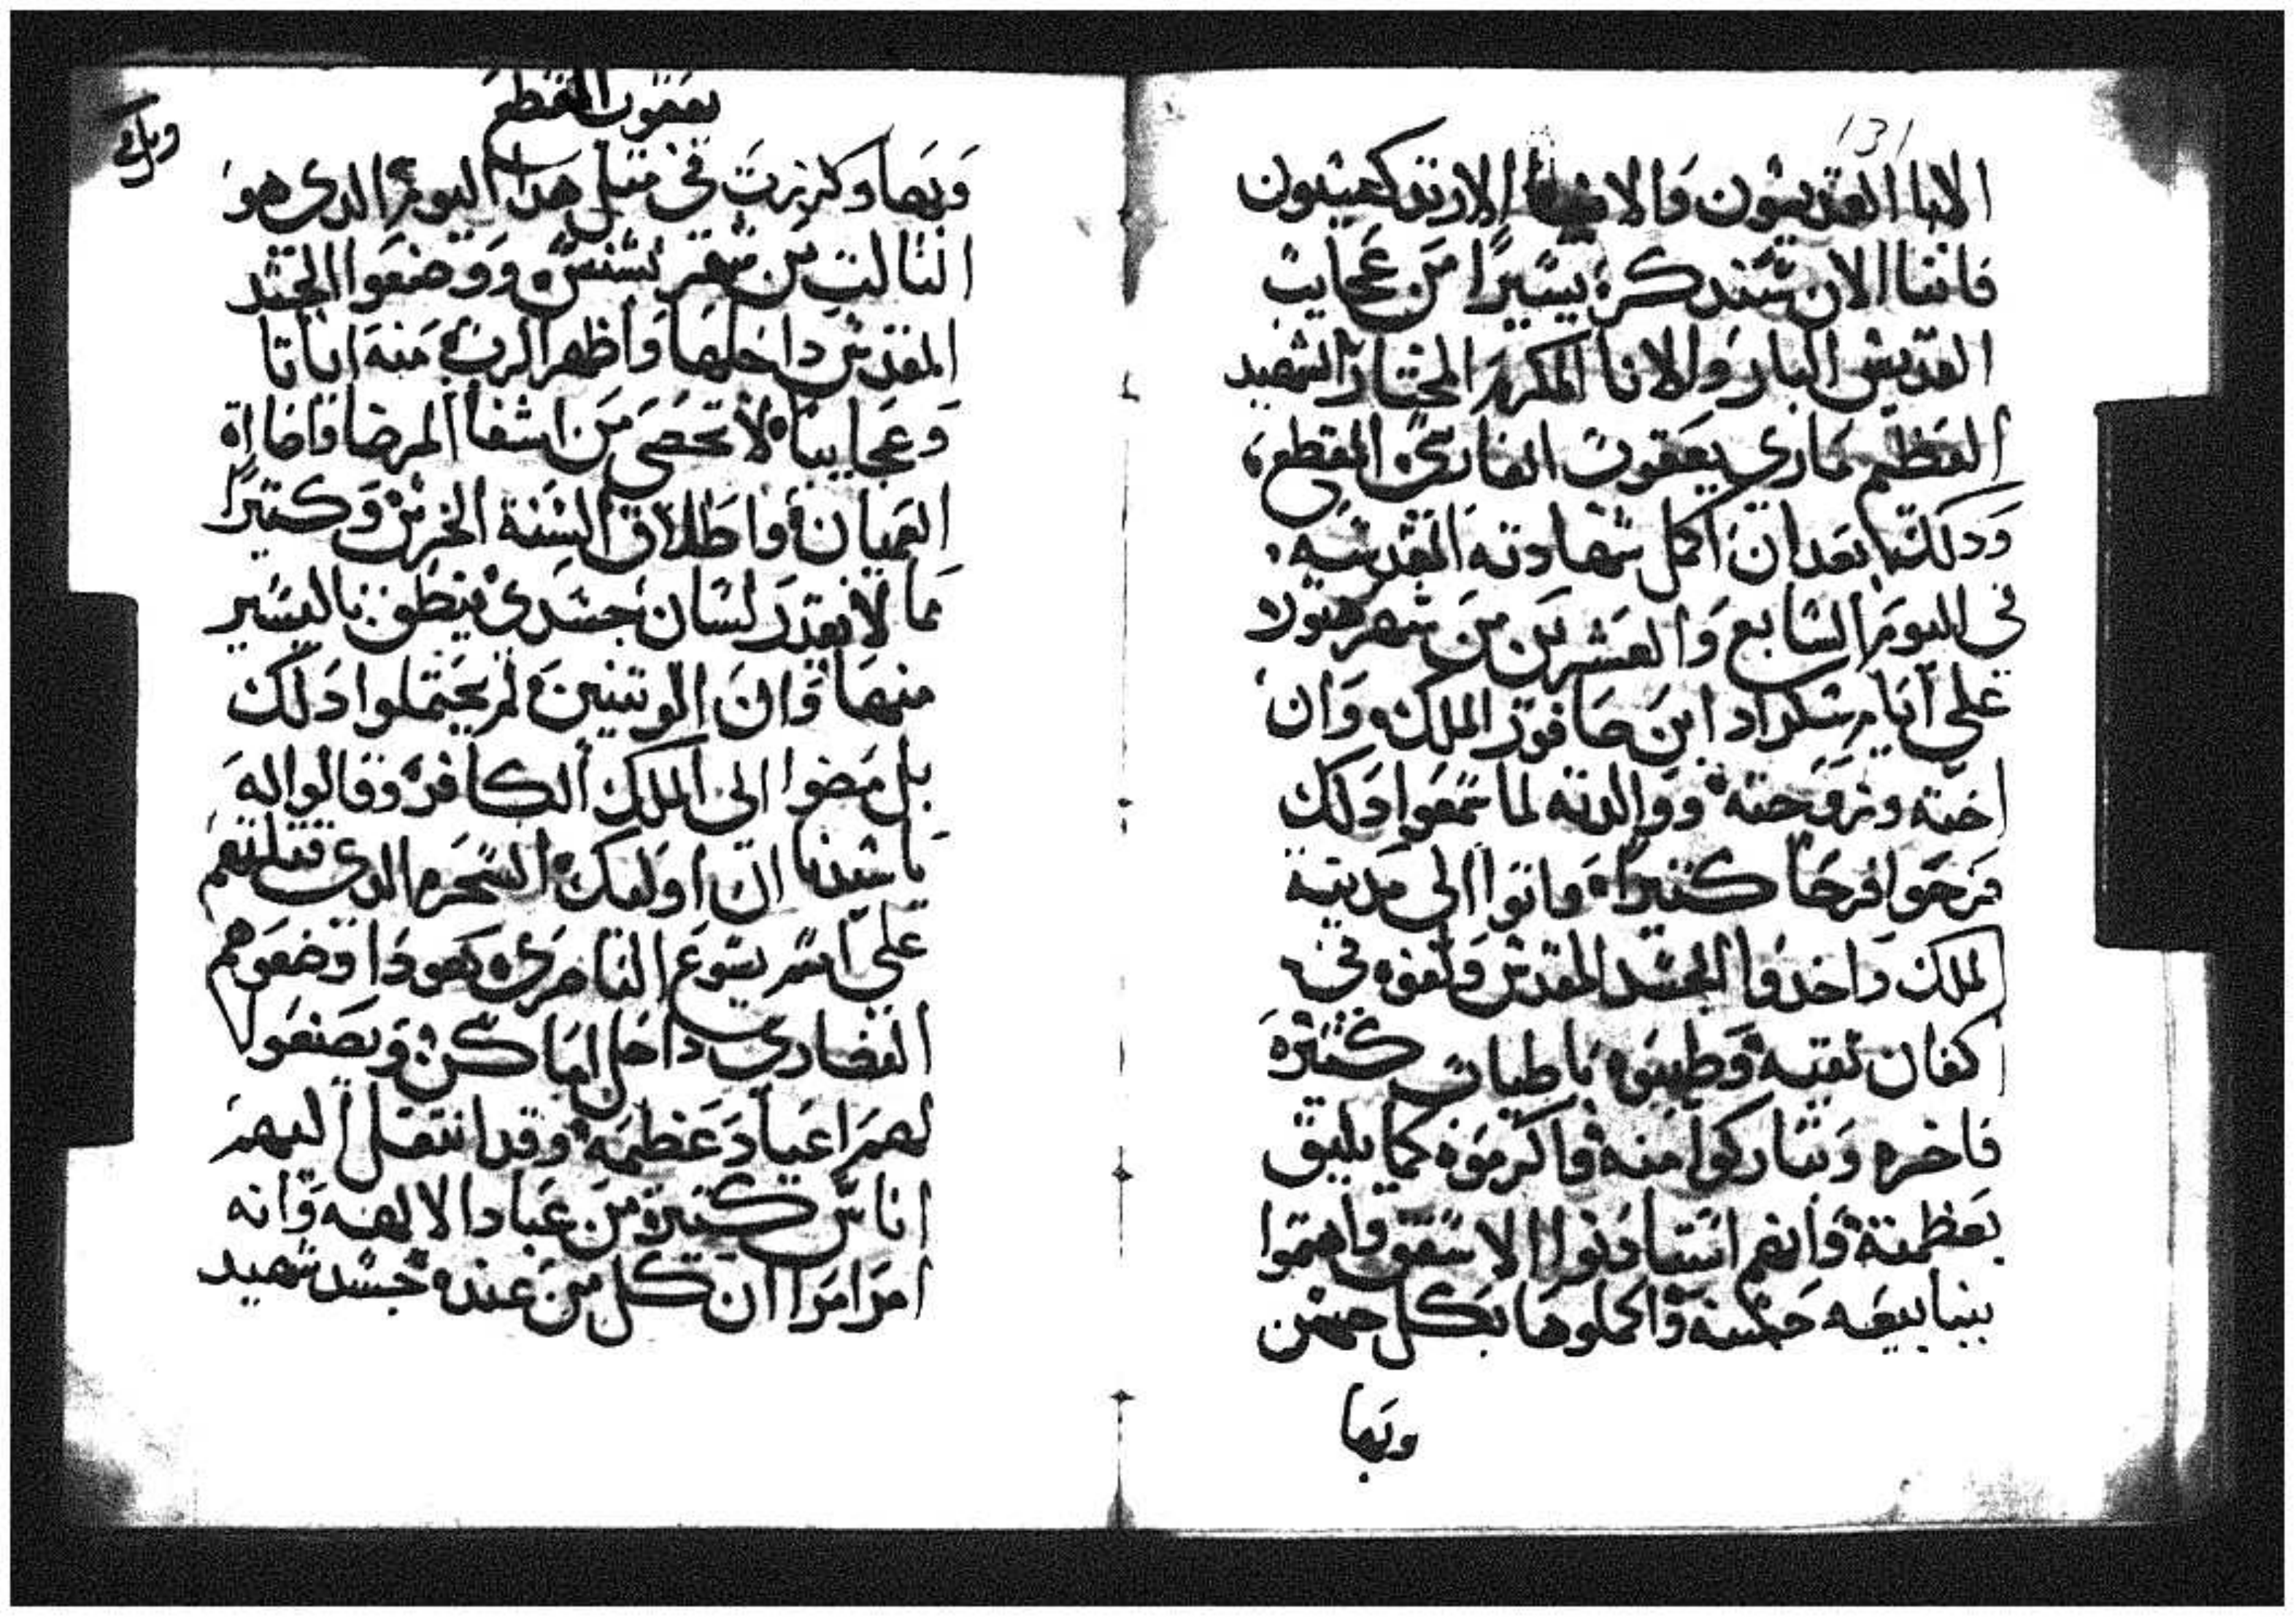 131
الابا القديسون والاخوة الارتدكسيون
فاننا الان نبتدي نذكر يسيرًا من عجايب
القديس البار والانا المكرم المختار الشهيد
العظيم ماري يعقوب الفارسي المقطع
ودلك بعد ان اكمل شهادته المقدسه
في اليوم السابع والعشرين من شهر هتولا
على ايام سكراد ابن صافور الملك وان
اخته وزوجته ووالدته لما سمعوا دلك
فرحوا فرحًا كتيرًا واتوا الى مدينة
الملك واخدوا الجسد المقدس ولفوه في
اكفان نقيه وطيبوه باطياب كتيره
فاخره وتباركوا منه واكرموه كما يليق
بعظمته وانهم استادنوا الاسقف واهتموا
ببنا بيعه حسنه واكملوها بكل حسن
وبها
يعقوب المقطع
وبها وكرزت في متل هدا اليوم الدي هو
التالت من شهر بشنس ووضعوا الجسد
المقدس داخلها واظهر الرب منه اياتا
وعجايبا لا تحصى من اشفا المرضا وافااة
العميان واطلاق السنة الخرس وكتيرًا
مما لا يقدر لسان جسدي ينطق باليسير
منها وان الوتنيين لم يحتملوا دلك
بل مضوا الى الملك الكافر وقالوا له
يا سيدنا ان اوليك السحره الدي قتلتهم
على اسم يسوع الناصري يهودا وضعوهم
النصاري داخل اماكن ويصنعوا
لهم اعياد عظيمه وقد انتقل اليهم
اناس كتيرة من عبادا الالهه وانه
امر امرا ان كل من عنده جسد شهيد